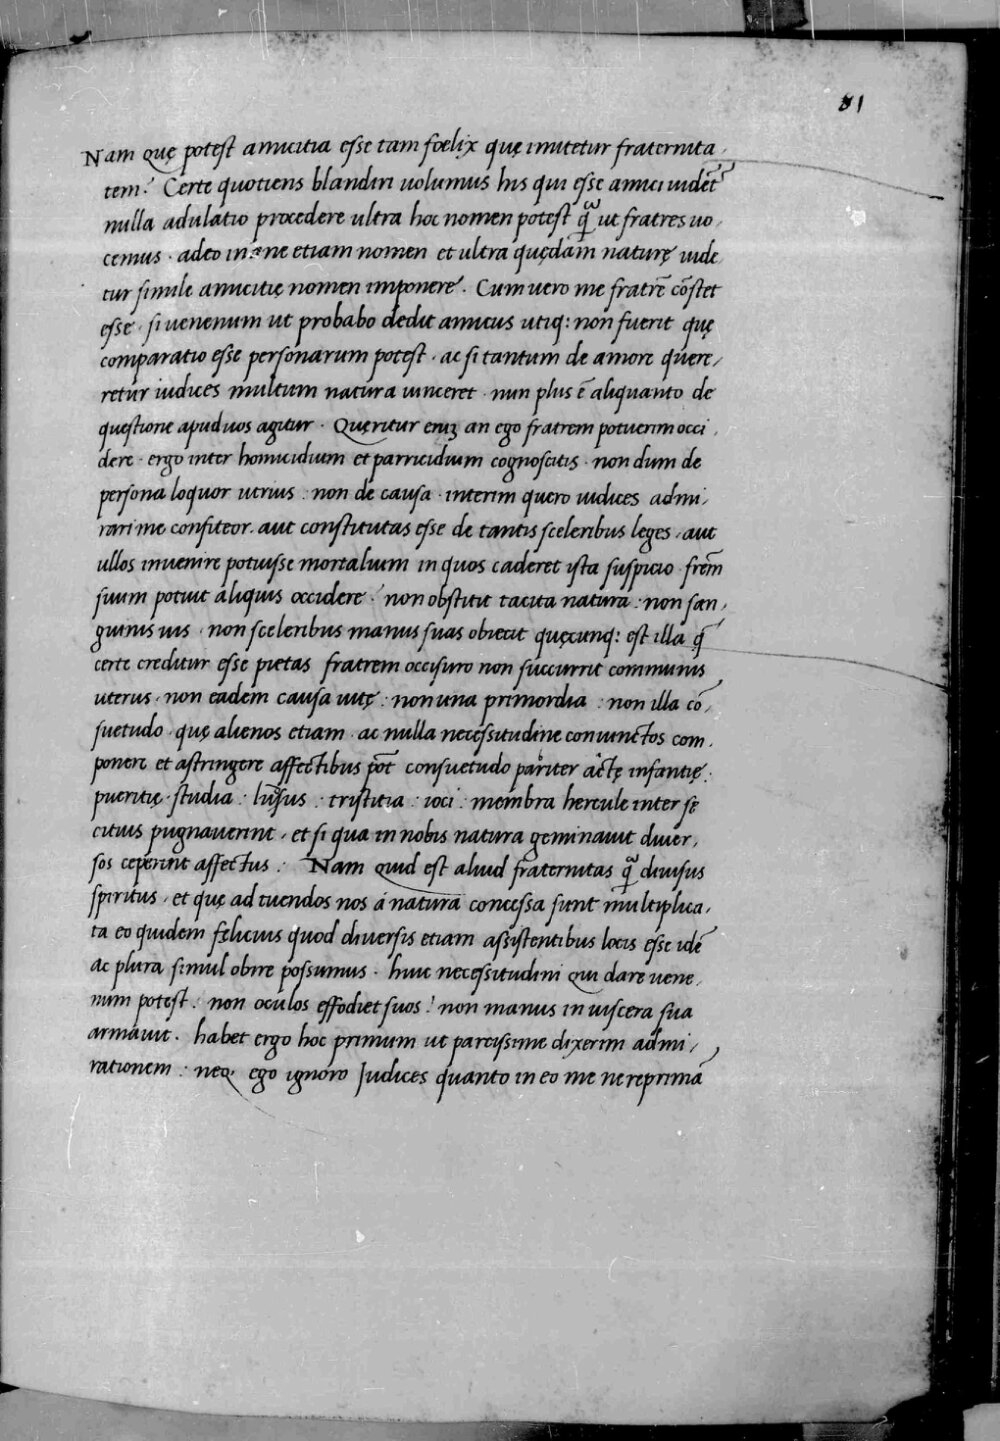 81
Nam quę potest amicitia esse tam foelix quę imitetur fraternita
tem? Certe quotiens blandiri uolumus his qui esse amici uidēt
nulla adulatio procedere ultra hoc nomen potest q̃ ut fratres uo
cemus · adeo inane etiam nomen et ultra quędam naturę uide
tur simile amicitię nomen imponere. Cum uero me fratrē cōstet
esse · si uenenum ut probabo dedit amicus utiq: non fuerit quę
comparatio esse personarum potest · ac si tantum de amore quere/
retur iudices multum natura uinceret · nun plus ē aliquanto de
questione apud uos agitur · Queritur eniʒ an ego fratrem potuerim occi
dere · ergo inter homicidium et parricidium cognoscitis · non dum de
persona loquor utrius : non de causa · interim quero iudices admi/
rari me confiteor · aut constitutas esse de tantis sceleribus leges · aut
ullos inuenire potuisse mortalium in quos caderet ista suspicio · frēm
suum potuit aliquis occidere · non obstitit tacita natura : non san/
guinis uis · non sceleribus manus suas obiecit quęcunq: est illa q̃
certe creditur esse pietas fratrem occisuro non succurrit communis
uterus · non eadem causa uitę : non una primordia : non illa cō/
suetudo · quę alienos etiam · ac nulla necessitudine coniunctos com.
ponere et astringere affectibus pōt consuetudo pariter actę infantię:
pueritię · studia : lusus : tristitia : ioci : membra hercule inter sę
citius pugnauerint · et si qua in nobis natura geminauit diuer,
sos ceperint affectus : Nam quid est aliud fraternitas q̃ diuisus
spiritus · et quę ad tuendos nos a natura concessa sunt multiplica,
ta eo quidem fęlicius quod diuersis etiam assistentibus locis esse idē
ac plura simul obire possumus · huic necessitudini qui dare uene,
num potest : non oculos effodiet suos! non manus in uiscera sua
armauit · habet ergo hoc primum ut parcissime dixerim admi/
rationem : neq. ego ignoro Iudices quanto in eo me ne reprimā